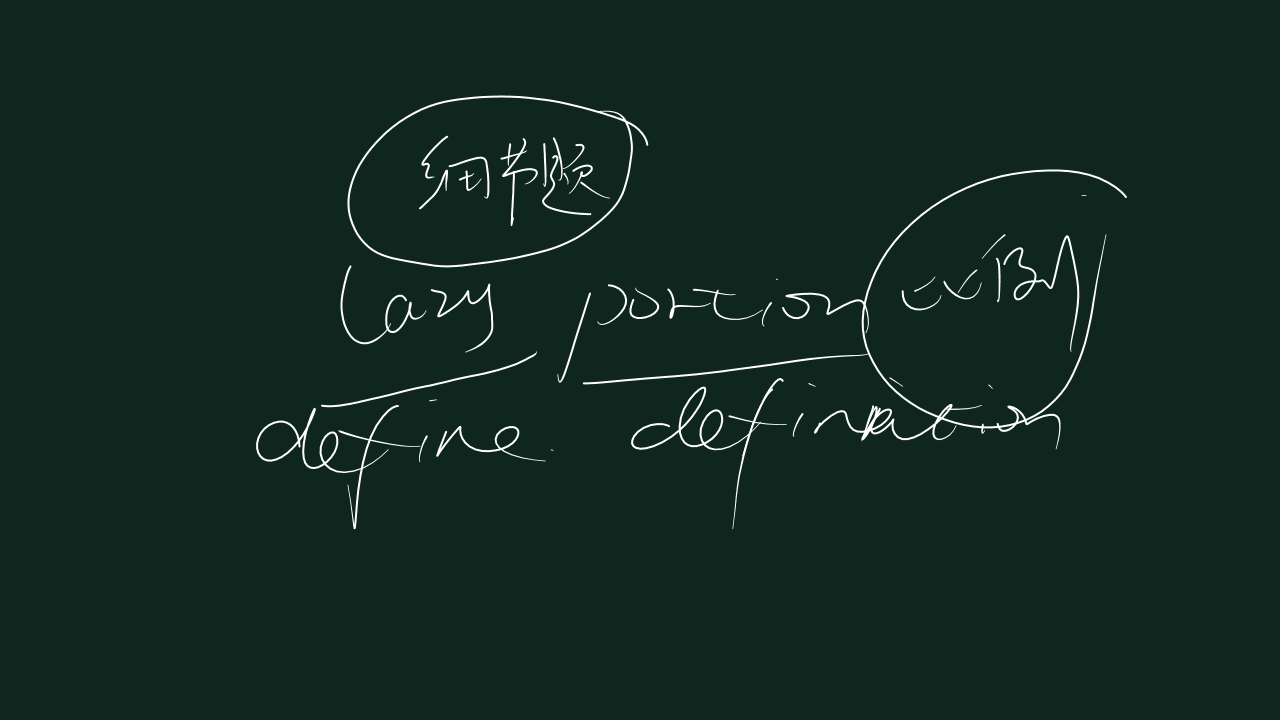 细节题
lazy portion ex例
define defination